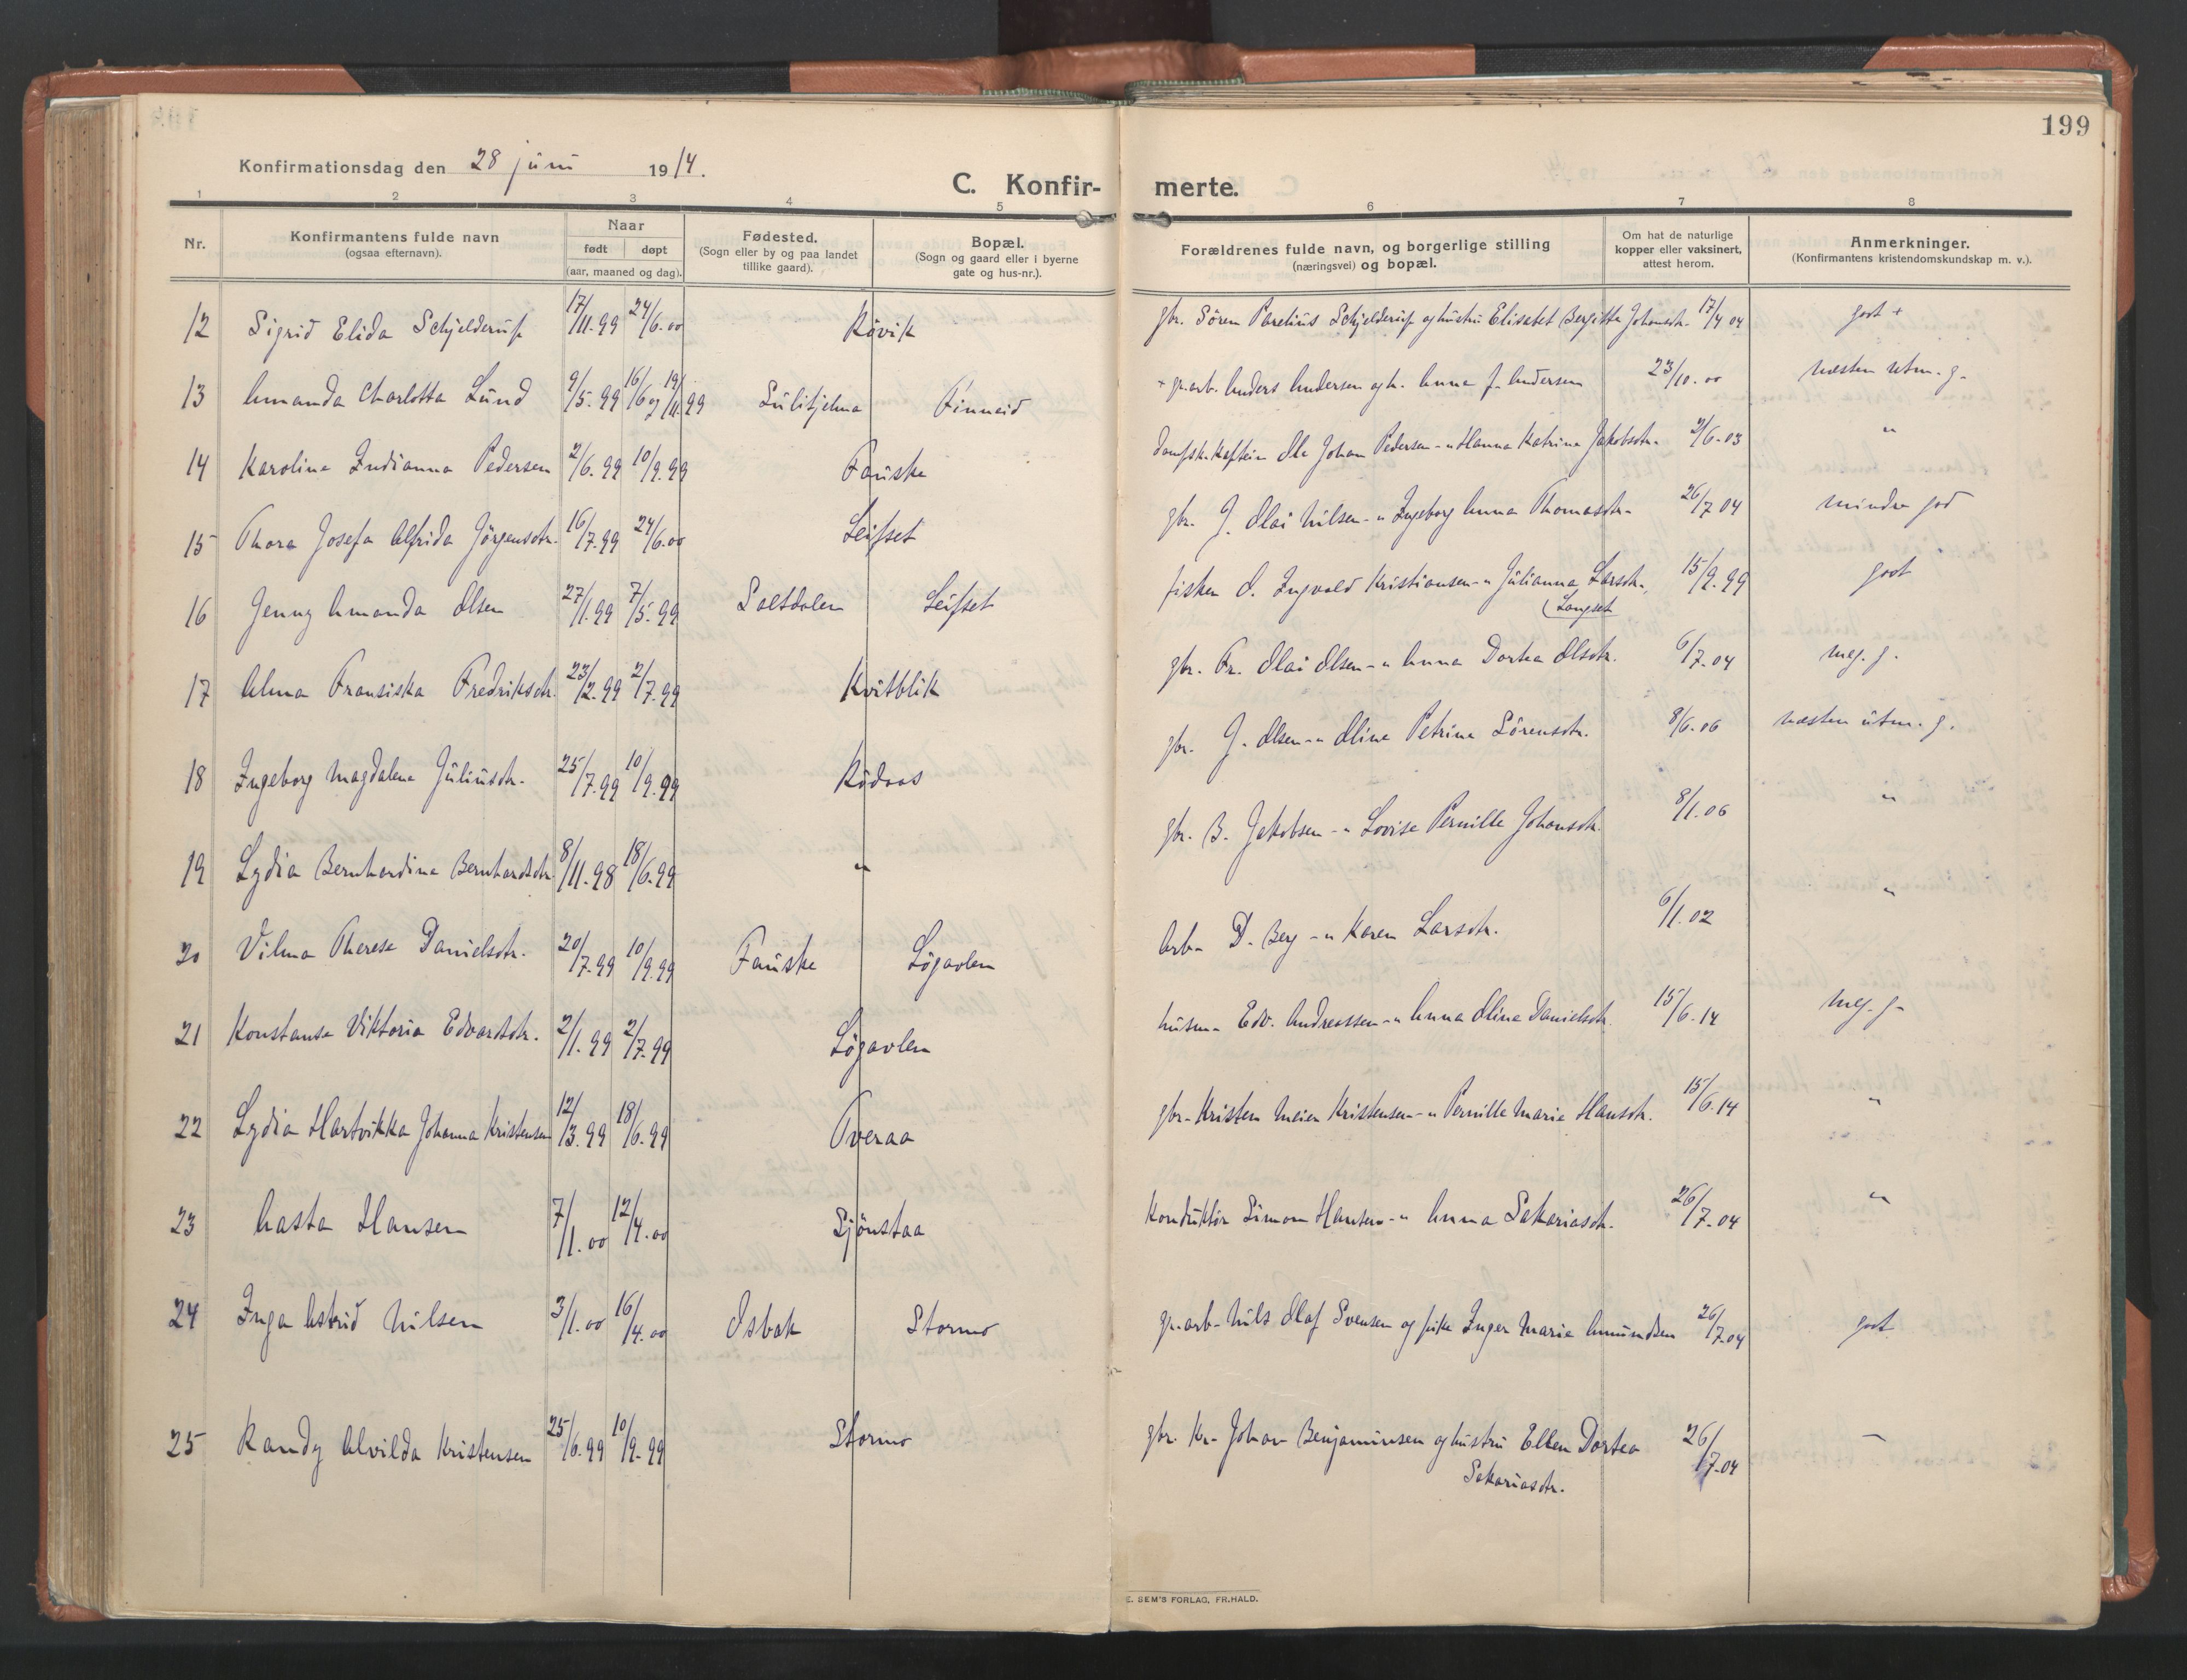 199
Konfirmationsdag den 28 juni 1914.
C. Konfir- merte.
1 2 3 4 5 6 7 8
Nr.
Konfirmantens fulde navn
(ogsaa efternavn).
Naar
født døpt
(aar, maaned og dag).
Fødested.
(Sogn eller by og paa landet
tillike gaard).
Bopæl.
(Sogn og gaard eller i byerne
gate og hus-nr.).
Forældrenes fulde navn, og borgerlige stilling
(næringsvei) og bopæl.
Om hat de naturlige
kopper eller vaksinert,
attest herom.
Anmerkninger.
(Konfirmantens kristendomskundskap m. v.).
12 Sigrid Elida Schjelderup 17/11.99 24/6.00 Røvik gbr. Sören Parelius Schjelderup og hustru Elisabet Bergitte Johansdtr. 17/4 04 godt +
13 Amanda Charlotta Lund 9/5.99 16/6 og 19/11.99 Sulitjelma Finneid + gr.arb. Anders Andersen og h. Anna J. Andersen 23/10.00 næsten utm. g.
14 Karoline Indianna Pedersen 2/6.99 10/9.99 Fauske dampsk.kaptein Ole Johan Pedersen - " Hanna Katrine Jakobsdtr. 2/6.03 "
15 Thora Josefa Alfrida Jörgensdtr. 16/7.99 24/6.00 Leifset gbr. J. Olai Nilsen - " Ingeborg Anna Thomasdtr. 26/7 04 mindre god
16 Jenny Amanda Olsen 27/1.99 7/5.99 Saltdalen Leifset fisker O. Ingvald Kristiansen - " Julianna Larsdtr., 15/9.99 godt
(Langset
17 Alma Fransiska Fredriksdtr. 23/2.99 2/7.99 Kvitblik gbr. Fr. Olai Olsen - " Anna Dortea Olsdtr. 6/7.04 meg. g.
18 Ingeborg Magdalena Juliusdtr. 25/7.99 10/9.99 Rödaas gbr. J. Olsen - " Oline Petrine Sörensdtr. 8/6.06 næsten utm. g.
19 Lydia Bernhardina Bernhardsdtr. 8/11.98 18/6.99 " gbr. B. Jakobsen - " Lovise Pernille Johansdtr. 8/1.06 "
20 Vilma Therese Danielsdtr. 20/7.99 10/9.99 Fauske Løgavlen Arb. D. Berg - " Karen Larsdtr. 6/1.02 "
21 Konstanse Viktoria Edvardsdtr. 2/1.99 2/7.99 Løgavlen husm. Edv. Andreassen - " Anna Oline Danielsdtr. 15/6.14 meg. g.
22 Lydia Hartvikka Johanna Kristensen 12/3.99 18/6.99 Tveraa gbr. Kristen Meier Kristensen - " Pernille Marie Hansdtr. 15/6.14 "
23 Aasta Hansen 7/1.00 12/4.00 Sjønstaa Konduktör Simon Hansen - " Anna Sakariasdtr. 26/7.04 "
24 Inga Astrid Nilsen 3/1.00 16/4.00 Isbak Stormo gr.arb. Nils Olaf Svensen og pike Inger Marie Amundsen 26/7.04 godt
25 Randy Alvilda Kristensen 25/6.99 10/9.99 Stormo gbr. Kr. Johan Benjaminsen og hustru Ellen Dortea 26/7.04 —
Sakariasdtr.
E. SEM'S FORLAG, FR.HALD.